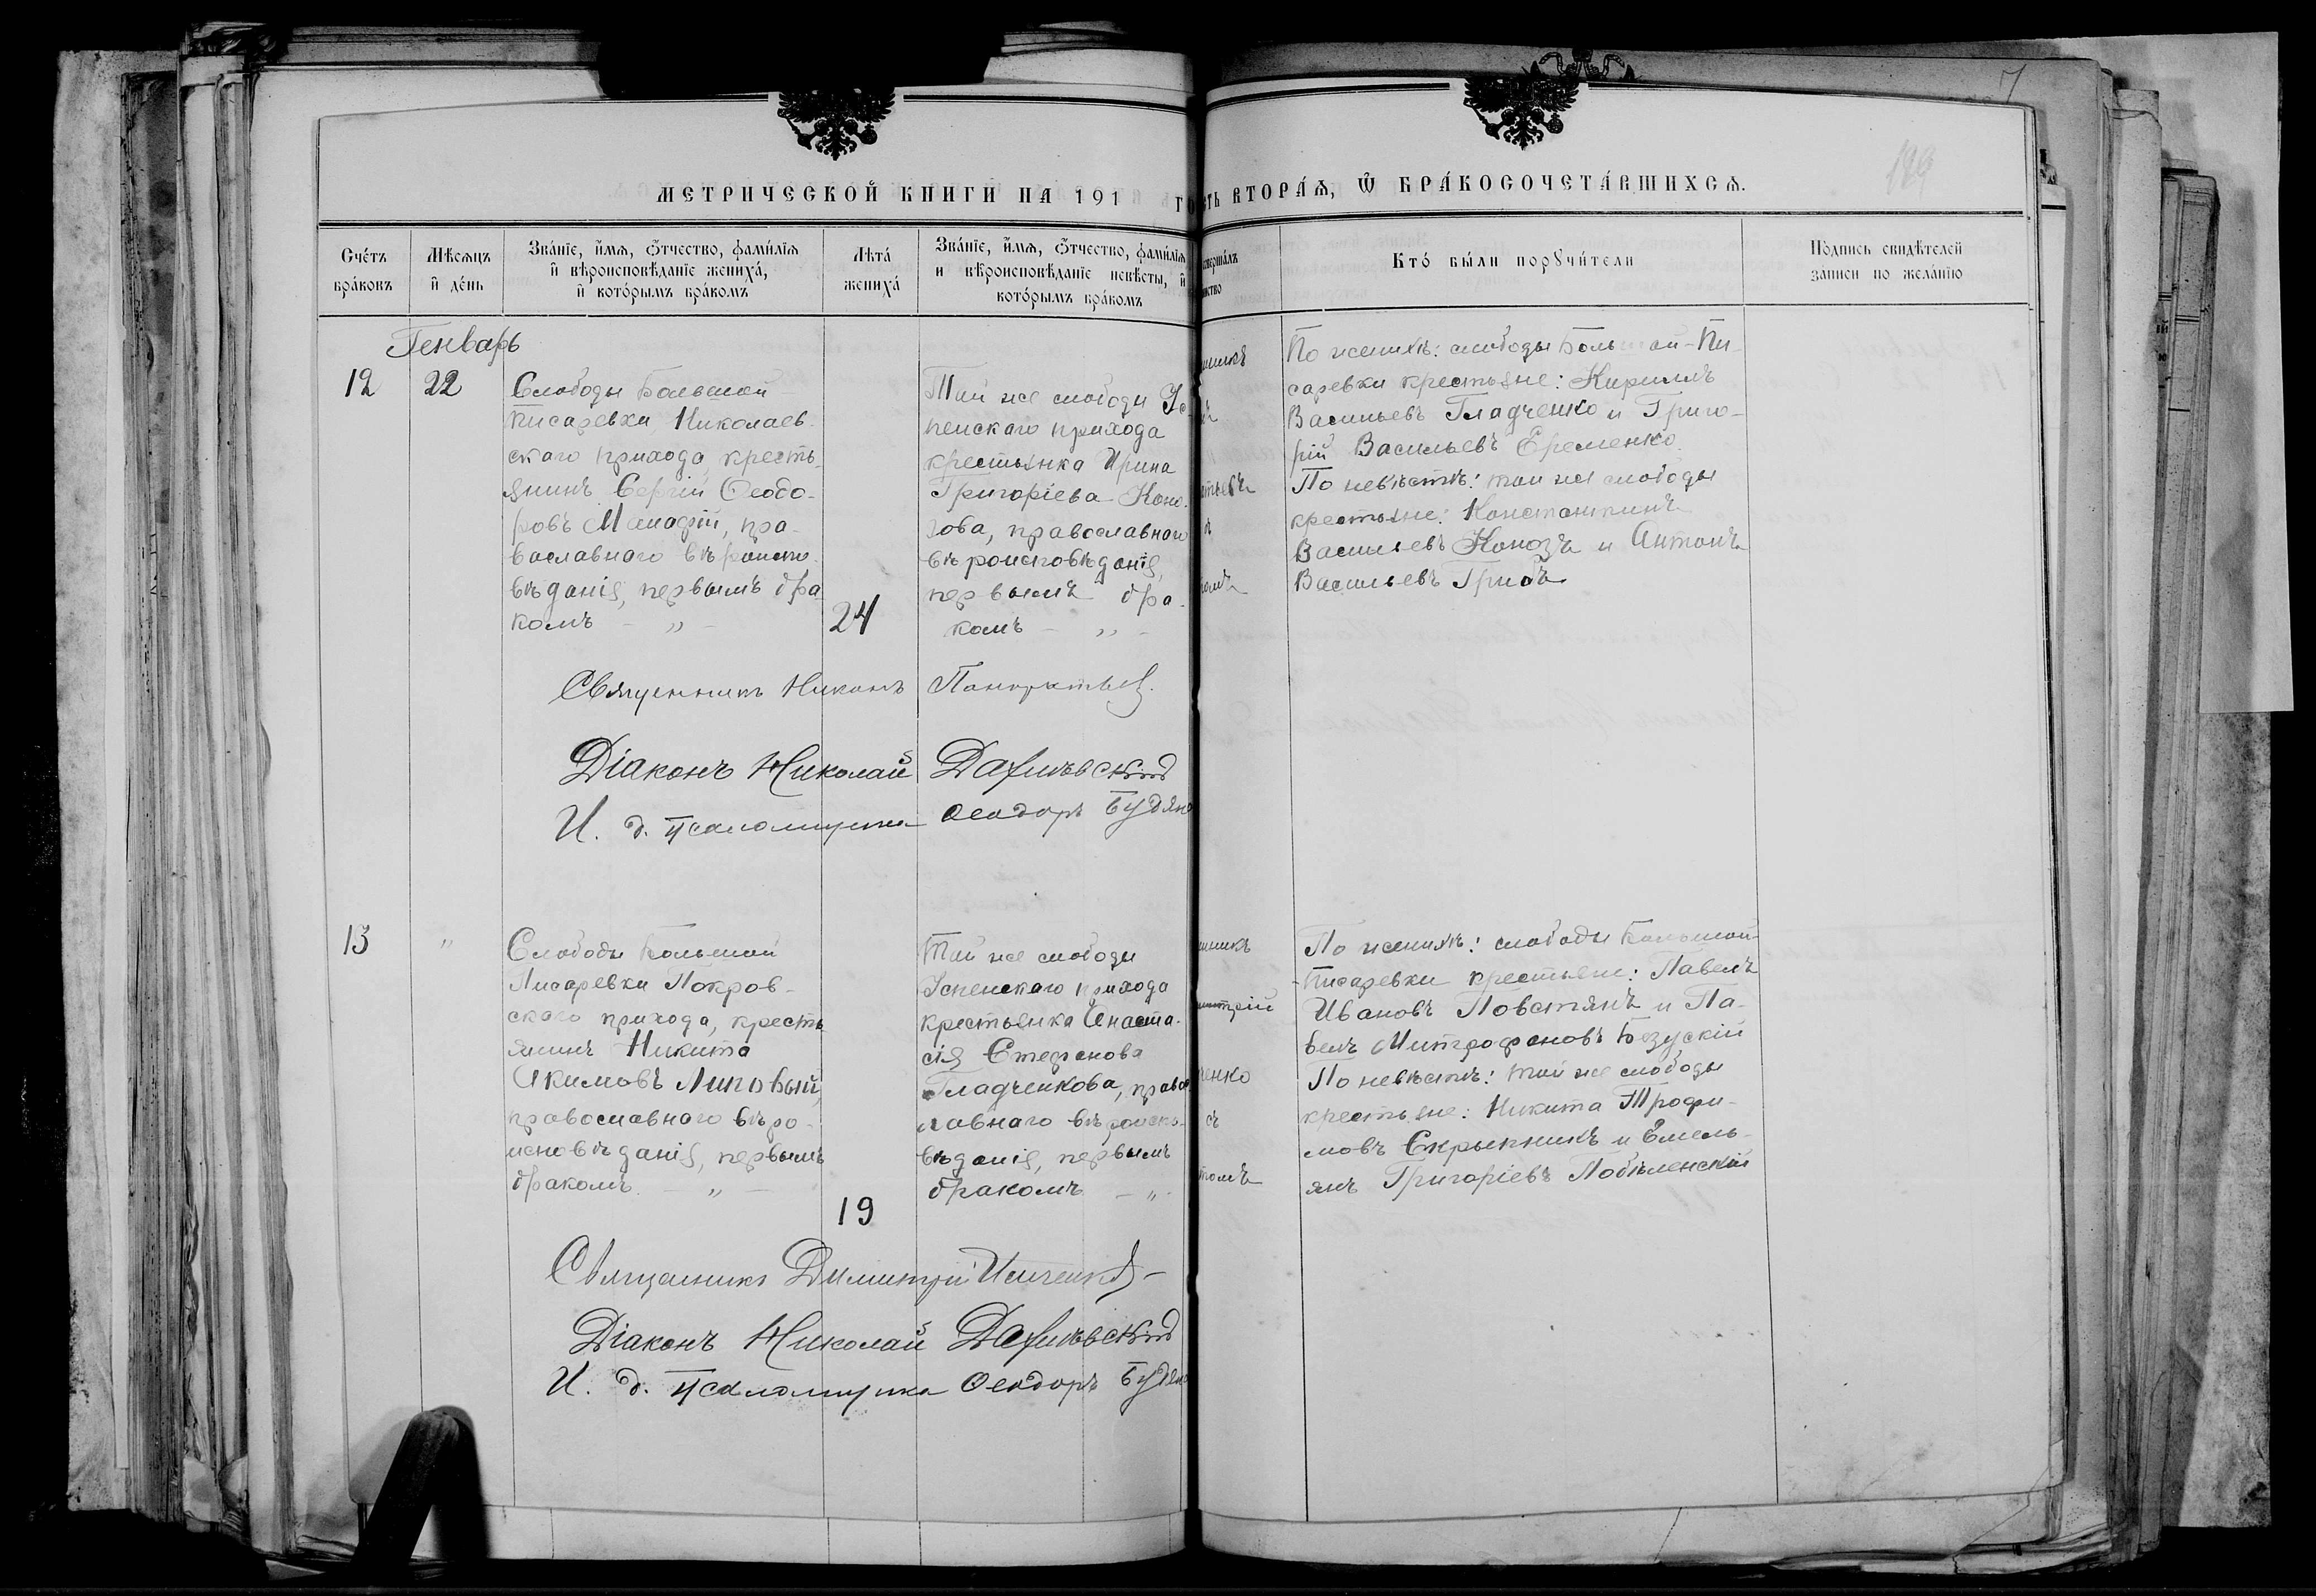 7
189
МЕТРИЧЕСКОЙ КНИГИ НА 191 ГО
СТЬ ВТОРАѦ, Ѿ БРАКОСОЧЕТАВШИХСѦ.
Счетъ браковъ
Мѣсяцъ и день
Званіе, имя, отчество, фамилія и вѣроисповѣданіе жениха, и которымъ бракомъ
Лѣта жениха
Званіе, имя, отчество, фамилія и вѣроисповѣданіе невѣсты, и которымъ бракомъ
Кто были поручители
Подпись свидѣтелей записи по желанію
Генварь
12
22
Слободы Большой
Писаревки Николаев-
скаго прихода кресть-
янинъ Сергій Ѳеодо-
ровъ
пра-
вославнаго вѣроиспо-
вѣданія, первымъ бра
комъ - „ -
24
Той же слободы Ус
пенскаго прихода
крестьянка Ирина
Григоріева Коно-
зова, православнаго
вѣроисповѣданія,
первымъ бра-
комъ - „ -
По женихѣ: слободы Большой-Пи-
саревки крестьяне: Кириллъ
Васильевъ Гладченко и Григо-
рій Васильевъ Еременко.
По невѣстѣ: той же слободы
крестьяне: Константинъ
Васильевъ Конозъ и Антонъ
Васильевъ Грибъ
Священникъ Никонъ Понкратьев.
Діаконъ Николай
И. д. псаломщика Ѳеодоръ Будян
13
„
Слободы Большой
Писаревки Покров-
скаго прихода, кресть
янинъ Никита
Акимовъ Липовый,
православнаго вѣро-
исповѣданія, первымъ
бракомъ. - „ -
19
Той же слободы
Успенскаго прихода
крестьянка Анаста-
сія Стефанова
Гладченкова, право
славнаго вѣроиспо-
вѣданія, первымъ
бракомъ - „ -
По женихѣ: слободы Большой-
-Писаревки крестьяне: Павелъ
Ивановъ Повстянъ и Па-
велъ Митрофановъ Бозускій
По невѣстѣ: той же слободы
крестьяне: Никита Трофи-
мовъ Скрыпникъ и Емель-
янъ Григоріевъ Побѣленскій
Священникъ Димитрій Ильченко
Діаконъ Николай
И. д. псаломщика Ѳеодоръ Будян